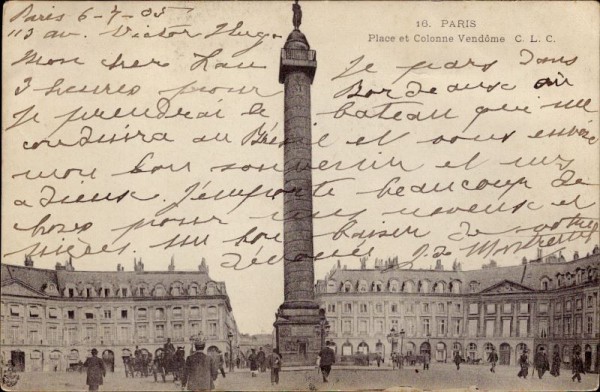 Paris 6-7-05
16. PARIS
113 av. Victor Hugo
Place et Colonne Vendôme C. L. C.
Mon cher Je pars dans
3 heures pour Bordeaux où
je prendrai le bateau qui me
conduira au Brésil et vous envoie
mon bon souvenir et mes
adieux. J'emporte beaucoup de
choses pour mes neveux et
nièces. Un bon baiser de votre
dévoué J. de